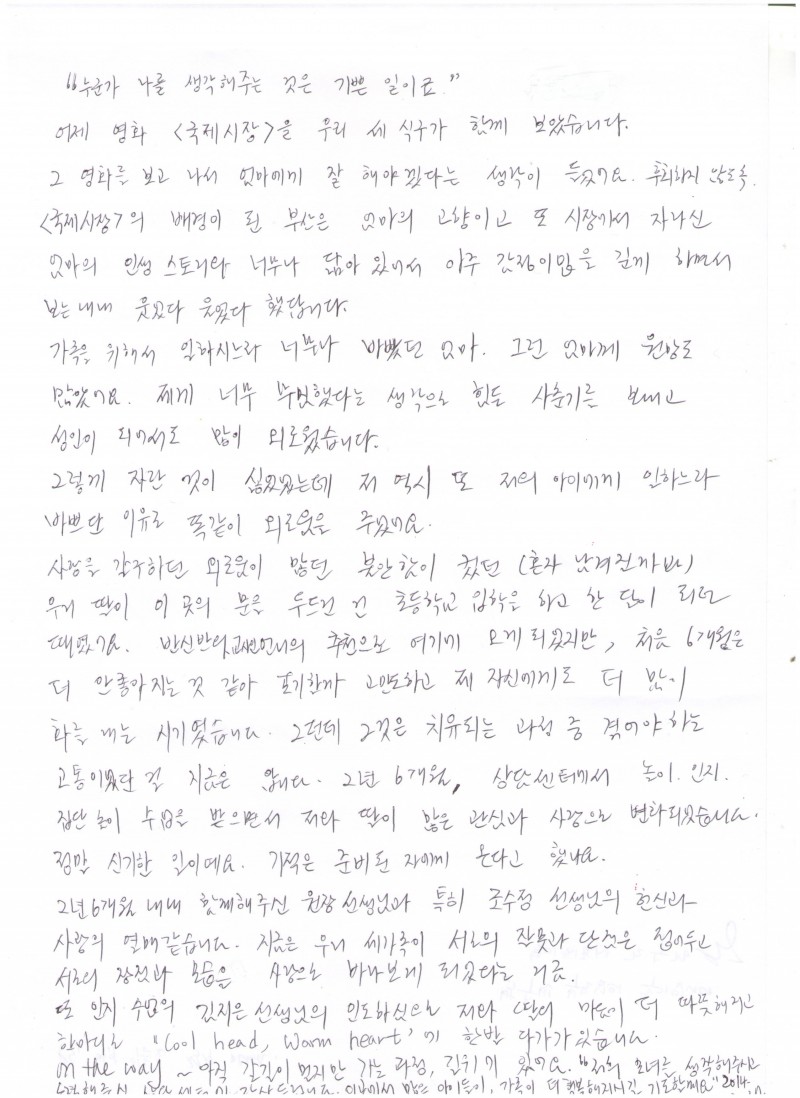 "누군가 나를 생각해주는 것은 기쁜 일이죠."
어제 영화 <국제시장>을 우리 세 식구가 함께 보았습니다.
그 영화를 보고 나서 엄마에게 잘 해야겠다는 생각이 들었어요. 후회하지 않도록.
<국제시장>의 배경이 된 부산은 엄마의 고향이고 또 시장에서 자라신
엄마의 인생 스토리와 너무나 닮아 있어서 아주 감정이입을 깊게 하면서
보는내내 웃었다 울었다 했답니다.
가족을 위해서 일하시느라 너무나 바빴던 엄마. 그런 엄마께 원망도
많았어요. 제게 너무 무심했다는 생각으로 힘든 사춘기를 보내고
성인이 되어서도 많이 외로웠습니다.
그렇게 자란 것이 싫었었는데 저 역시 또 저의 아이에게 일하느라
바쁘단 이유로 똑같이 외로움을 주었어요.
사랑을 갈구하던 외로움이 많던 불안함이 컸던 (혼자 남겨진까봐)
우리 딸이 이 곳의 문을 두드린 건 초등학교 입학을 하고 한 달이 되던
때였어요. 반신반의 교현언니의 추천으로 여기에 오게 되었지만, 처음 6개월은
더 안좋아지는 것 같아 포기할까 고민도하고 제 자신에게도 더 많이
화를 내는 시기였습니다. 그런데 그것은 치유되는 과정 중 겪어야 하는
고통이었단 걸 지금은 압니다. 2년 6개월, 상담센터에서 놀이. 인지.
집단 놀이 수업을 받으면서 저와 딸이 많은 관심과 사랑으로 변화되었습니다.
정말 신기한 일이에요. 기적은 준비된 자에게 온다고 했나요.
2년 6개월 내내 함께해주신 원장선생님과 특히 조수정 선생님의 헌신과
사랑의 열매같습니다. 지금은 우리 세가족이 서로의 잘못과 단점은 접어두고
서로의 장점과 모습을 사랑으로 바라보게 되었다는 거죠.
또 인지 수업의 김지은 선생님의 인도하심으로 저와 딸의 마음이 더 따뜻해지고
한마디로 "Cool head, warm heart"에 한발 다가가 있습니다.
on the way ~ 아직 갈길이 멀지만 가는 과정, 길위에 있어요. "저희 모녀를 생각해주시고
감사드립니다. 이곳에서 많은 아이들이, 가족이 더 행복해지시길 기도할께요" 2014.